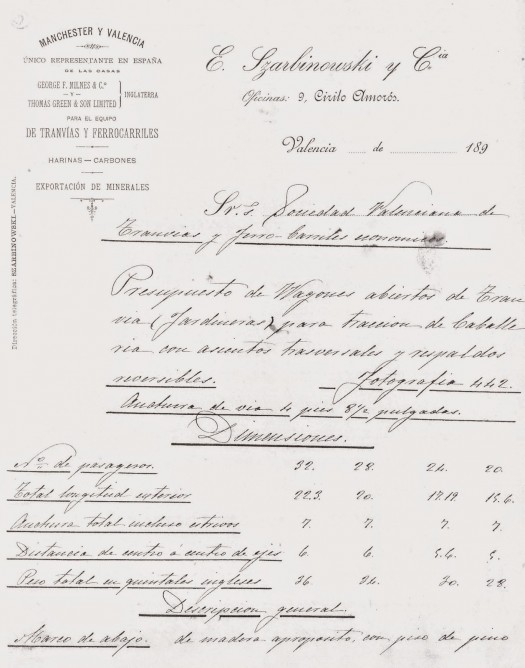 MANCHESTER Y VALENCIA
ÚNICO REPRESENTANTE EN ESPAÑA
DE LAS CASAS
GEORGE F. MILNES & C.º
— Y —
THOMAS GREEN & SON LIMITED
INGLATERRA
PARA EL EQUIPO
DE TRANVÍAS Y FERROCARRILES
HARINAS — CARBONES
EXPORTACIÓN DE MINERALES
Dirección telegráfica: SZARBINOWSKI.—VALENCIA.
E. Szarbinowski y C.ia
Oficinas: 9, Cirilo Amorós.
Valencia de 189
Sr.s Sociedad Valenciana de
Tranvias y Ferro-Carriles economicos.
Presupuesto de Wagones abiertos de Tran
via (Jardineras) para traccion de Caballe
ria con asientos trasversales y respaldos
reversibles. — Fotografia 442.
Anchura de via 4 pies 8½ pulgadas.
Dimensiones.
Nº de pasageros. 32. 28. 24. 20.
Total longitud exterior 22.3. 20. 17.19 15.6.
Anchura total incluso estrivos 7. 7. 7. 7.
Distancia de centro á centro de ejes 6 6. 5.6. 5.
Peso total en quintales ingleses 36 34. 30. 28.
Descripcion general.
Marco de abajo. de madera aproposito, con piso de pino